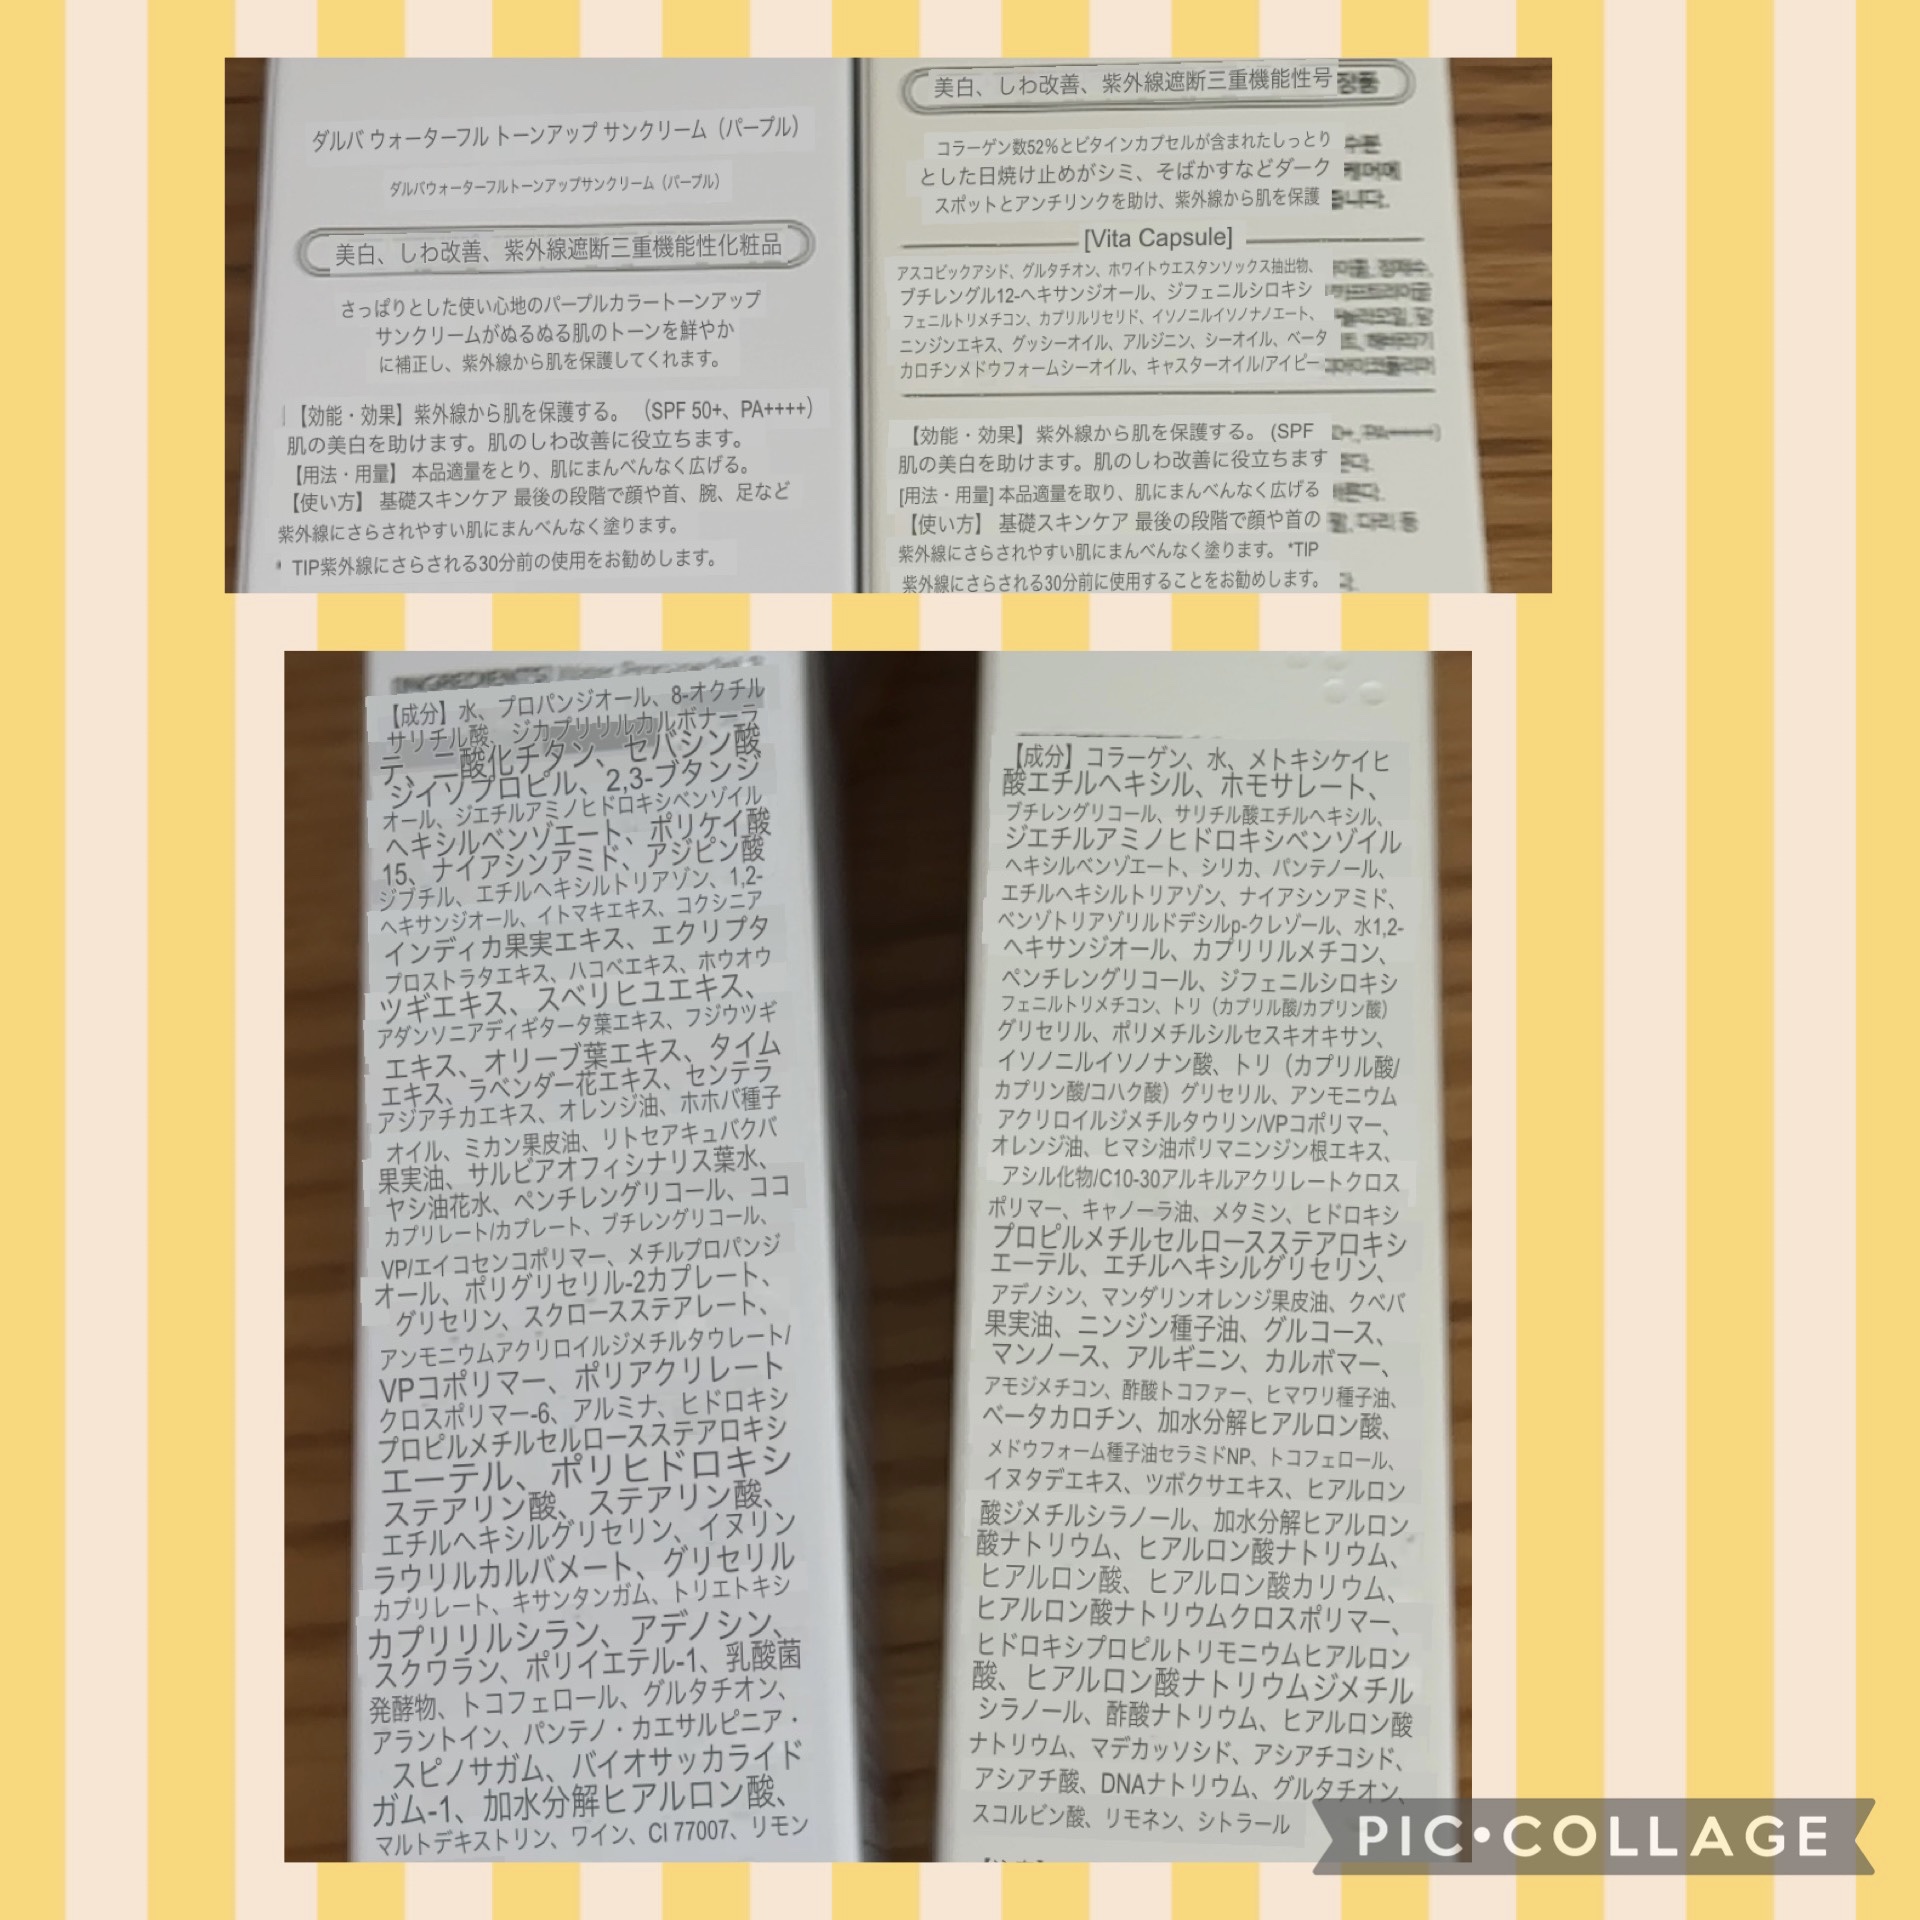 ダルバ ウォーターフル トーンアップ サンクリーム（パープル）
ダルバウォーターフルトーンアップサンクリーム（パープル）
美白、しわ改善、紫外線遮断三重機能性化粧品
さっぱりとした使い心地のパープルカラートーンアップ
サンクリームがぬるぬる肌のトーンを鮮やか
に補正し、紫外線から肌を保護してくれます。
【効能・効果】紫外線から肌を保護する。（SPF 50+、PA++++）
肌の美白を助けます。肌のしわ改善に役立ちます。
【用法・用量】 本品適量をとり、肌にまんべんなく広げる。
【使い方】 基礎スキンケア 最後の段階で顔や首、腕、足など
紫外線にさらされやすい肌にまんべんなく塗ります。
* TIP紫外線にさらされる30分前の使用をお勧めします。
美白、しわ改善、紫外線遮断三重機能性号
コラーゲン数52%とビタインカプセルが含まれたしっとり
とした日焼け止めがシミ、そばかすなどダーク
スポットとアンチリンクを助け、紫外線から肌を保護
[Vita Capsule]
アスコビックアシド、グルタチオン、ホワイトウエスタンソックス抽出物、
ブチレングル12-ヘキサンジオール、ジフェニルシロキシ
フェニルトリメチコン、カプリルリセリド、イソノニルイソノナノエート、
ニンジンエキス、グッシーオイル、アルジニン、シーオイル、ベータ
カロチンメドウフォームシーオイル、キャスターオイル/アイピー
【効能・効果】紫外線から肌を保護する。 (SPF
肌の美白を助けます。肌のしわ改善に役立ちます
[用法・用量] 本品適量を取り、肌にまんべんなく広げる
【使い方】 基礎スキンケア 最後の段階で顔や首の
紫外線にさらされやすい肌にまんべんなく塗ります。 *TIP
紫外線にさらされる30分前に使用することをお勧めします。
【成分】水、プロパンジオール、8-オクチル
サリチル酸、ジカプリリルカルボナーラ
テ、二酸化チタン、セバシン酸
ジイソプロピル、2,3-ブタンジ
オール、ジエチルアミノヒドロキシベンゾイル
ヘキシルベンゾエート、ポリケイ酸
15、ナイアシンアミド、アジピン酸
ジブチル、エチルヘキシルトリアゾン、1,2-
ヘキサンジオール、イトマキエキス、コクシニア
インディカ果実エキス、エクリプタ
プロストラタエキス、ハコベエキス、ホウオウ
ツギエキス、スベリヒユエキス、
アダンソニアディギタータ葉エキス、フジウツギ
エキス、オリーブ葉エキス、タイム
エキス、ラベンダー花エキス、センテラ
アジアチカエキス、オレンジ油、ホホバ種子
オイル、ミカン果皮油、リトセアキュバクバ
果実油、サルビアオフィシナリス葉水、
ヤシ油花水、ペンチレングリコール、ココ
カプリレート/カプレート、ブチレングリコール、
VP/エイコセンコポリマー、メチルプロパンジ
オール、ポリグリセリル-2カプレート、
グリセリン、スクロースステアレート、
アンモニウムアクリロイルジメチルタウレート/
VPコポリマー、ポリアクリレート
クロスポリマー-6、アルミナ、ヒドロキシ
プロピルメチルセルロースステアロキシ
エーテル、ポリヒドロキシ
ステアリン酸、ステアリン酸、
エチルヘキシルグリセリン、イヌリン
ラウリルカルバメート、グリセリル
カプリレート、キサンタンガム、トリエトキシ
カプリリルシラン、アデノシン、
スクワラン、ポリイエテル-1、乳酸菌
発酵物、トコフェロール、グルタチオン、
アラントイン、パンテノ・カエサルピニア・
スピノサガム、バイオサッカライド
ガム-1、加水分解ヒアルロン酸、
マルトデキストリン、ワイン、CI 77007、リモン
【成分】コラーゲン、水、メトキシケイヒ
酸エチルヘキシル、ホモサレート、
ブチレングリコール、サリチル酸エチルヘキシル、
ジエチルアミノヒドロキシベンゾイル
ヘキシルベンゾエート、シリカ、パンテノール、
エチルヘキシルトリアゾン、ナイアシンアミド、
ベンゾトリアゾリルドデシルp-クレゾール、水1,2-
ヘキサンジオール、カプリリルメチコン、
ペンチレングリコール、ジフェニルシロキシ
フェニルトリメチコン、トリ（カプリル酸/カプリン酸）
グリセリル、ポリメチルシルセスキオキサン、
イソノニルイソノナン酸、トリ（カプリル酸/
カプリン酸/コハク酸）グリセリル、アンモニウム
アクリロイルジメチルタウリン/VPコポリマー、
オレンジ油、ヒマシ油ポリマニンジン根エキス、
アシル化物/C10-30アルキルアクリレートクロス
ポリマー、キャノーラ油、メタミン、ヒドロキシ
プロピルメチルセルロースステアロキシ
エーテル、エチルヘキシルグリセリン、
アデノシン、マンダリンオレンジ果皮油、クベバ
果実油、ニンジン種子油、グルコース、
マンノース、アルギニン、カルボマー、
アモジメチコン、酢酸トコファー、ヒマワリ種子油、
ベータカロチン、加水分解ヒアルロン酸、
メドウフォーム種子油セラミドNP、トコフェロール、
イヌタデエキス、ツボクサエキス、ヒアルロン
酸ジメチルシラノール、加水分解ヒアルロン
酸ナトリウム、ヒアルロン酸ナトリウム、
ヒアルロン酸、ヒアルロン酸カリウム、
ヒアルロン酸ナトリウムクロスポリマー、
ヒドロキシプロピルトリモニウムヒアルロン
酸、ヒアルロン酸ナトリウムジメチル
シラノール、酢酸ナトリウム、ヒアルロン酸
ナトリウム、マデカッソシド、アシアチコシド、
アシアチ酸、DNAナトリウム、グルタチオン、
スコルビン酸、リモネン、シトラール
PIC•COLLAGE